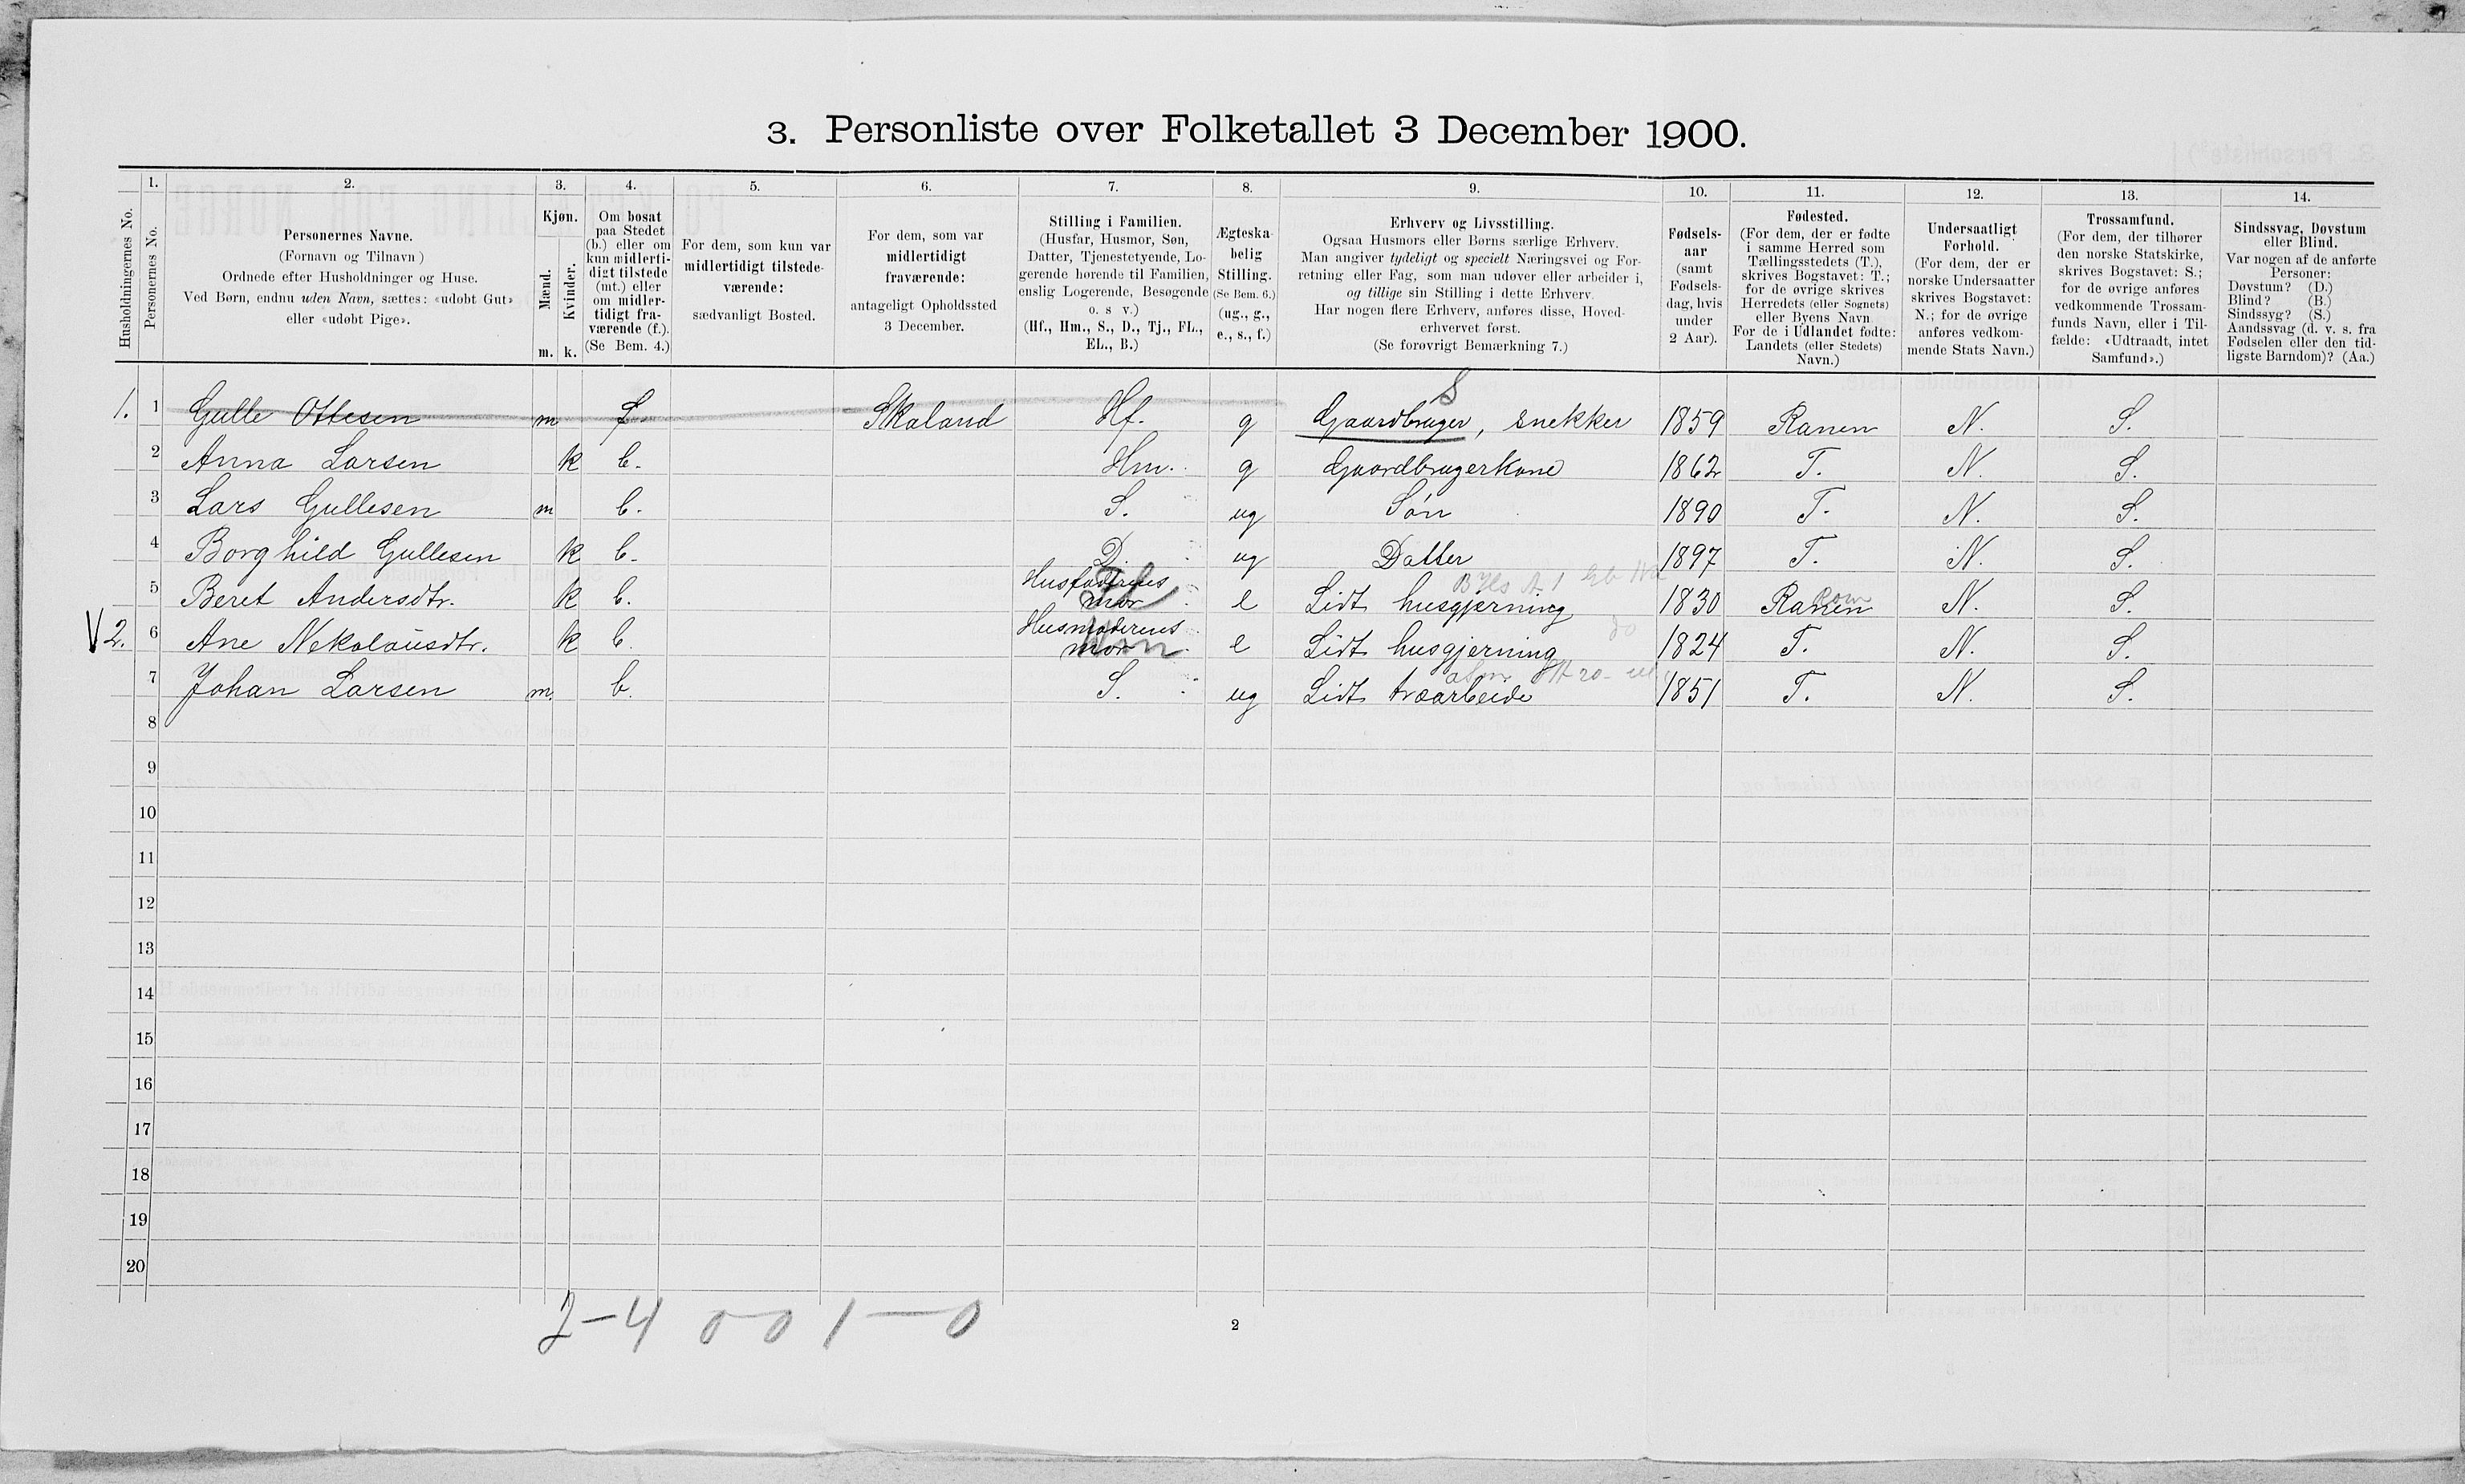 3. Personliste over Folketallet 3 December 1900.
1. 2. 3. 4. 5. 6. 7. 8. 9. 10. 11. 12. 13. 14.
Husholdningernes No.
Personernes No.
Personernes Navne.
(Fornavn og Tilnavn)
Ordnede efter Husholdninger og Huse.
Ved Børn, endnu uden Navn, sættes: «udøbt Gut»
eller «udøbt Pige».
Kjøn.
Mænd.
Kvinder.
m. k.
Om bosat
paa Stedet
(b.) eller om
kun midlerti-
digt tilstede
(mt.) eller
om midler-
tidigt fra-
værende (f.).
(Se Bem. 4.)
For dem, som kun var
midlertidigt tilstede-
værende:
sædvanligt Bosted.
For dem, som var
midlertidigt
fraværende:
antageligt Opholdssted
3 December.
Stilling i Familien.
(Husfar, Husmor, Søn,
Datter, Tjenestetyende, Lo-
gerende hørende til Familien,
enslig Logerende, Besøgende
o. s v.)
(Hf., Hm., S., D., Tj., FL.,
EL., B.)
Ægteska-
belig
Stilling.
(Se Bem. 6.)
(ug., g.,
e., s., f.)
Erhverv og Livsstilling.
Ogsaa Husmors eller Børns særlige Erhverv.
Man angiver tydeligt og specielt Næringsvei og For-
retning eller Fag, som man udøver eller arbeider i,
og tillige sin Stilling i dette Erhverv.
Har nogen flere Erhverv, anføres disse, Hoved-
erhvervet først.
(Se forøvrigt Bemærkning 7.)
Fødsels-
aar
(samt
Fødsels-
dag, hvis
under
2 Aar).
Fødested.
(For dem, der er fødte
i samme Herred som
Tællingsstedets (T.),
skrives Bogstavet: T.;
for de øvrige skrives
Herredets (eller Sognets)
eller Byens Navn
For de i Udlandet fødte:
Landets (eller Stedets)
Navn.)
Undersaatligt
Forhold.
(For dem, der er
norske Undersaatter
skrives Bogstavet:
N.; for de øvrige
anføres vedkom-
mende Stats Navn.)
Trossamfund.
(For dem, der tilhører
den norske Statskirke,
skrives Bogstavet: S.;
for de øvrige anføres
vedkommende Trossam-
funds Navn, eller i Til-
fælde: «Udtraadt, intet
Samfund».)
Sindssvag, Døvstum
eller Blind.
Var nogen af de anførte
Personer:
Døvstum? (D.)
Blind? (B.)
Sindssyg? (S.)
Aandssvag (d. v. s. fra
Fødselen eller den tid-
ligste Barndom)? (Aa.)
S
1. 1 Gulle Ottesen m f. Skaland Hf. g Gaardbruger, snekker 1859 Ranen N. S.
2 Anna Larsen k b. Hm. g Gaardbrugerkone 1862 T. N. S.
3 Lars Gullesen m b. S. ug Søn 1890 T. N. S.
4 Borghild Gullesen k b. D. ug Datter 1897 T. N. S.
5 Beret Andersdtr. k b. Husfaderens mor e Lidt husgjerning 1830 Ranen N. S.
V 2. 6 Ane Nekolausdtr. k b. Husmoderens mor e Lidt husgjerning do 1824 T. N. S.
7 Johan Larsen m. b. S. ug Lidt træarbeide 1851 T. N. S.
8
9
10
11
12
13
14
15
16
17
18
19
20
2-4 0-0 1-0
2